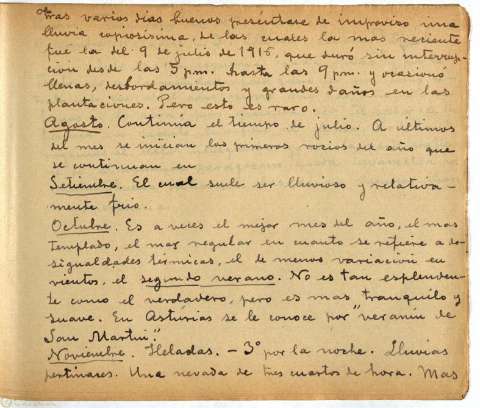 tras varios días buenos preséntase de improviso una
lluvia copiosísima, de las cuales la mas reciente
fué la del 9 de julio de 1916, que duró sin interrup-
ción desde las 5 p.m. hasta las 9 p.m. y ocasionó
llenas, desbordamientos y grandes daños en las
plantaciones. Pero esto es raro.
Agosto. Continúa el tiempo de julio. A últimos
del mes se inician los primeros rocíos del año que
se continuan en
Setiembre. El cual suele ser lluvioso y relativa-
mente frio.
Octubre. Es a veces el mejor mes del año, el mas
templado, el mas regular en cuanto se refiere a de-
sigualdades térmicas, el de menos variación en
vientos, el segundo verano. No es tan esplenden-
te como el verdadero, pero es mas tranquilo y
suave. En Asturias se le conoce por "veranin de
San Martin".
Noviembre. Heladas. - 3° por la noche. Lluvias
pertinaces. Una nevada de tres cuartos de hora. Mas